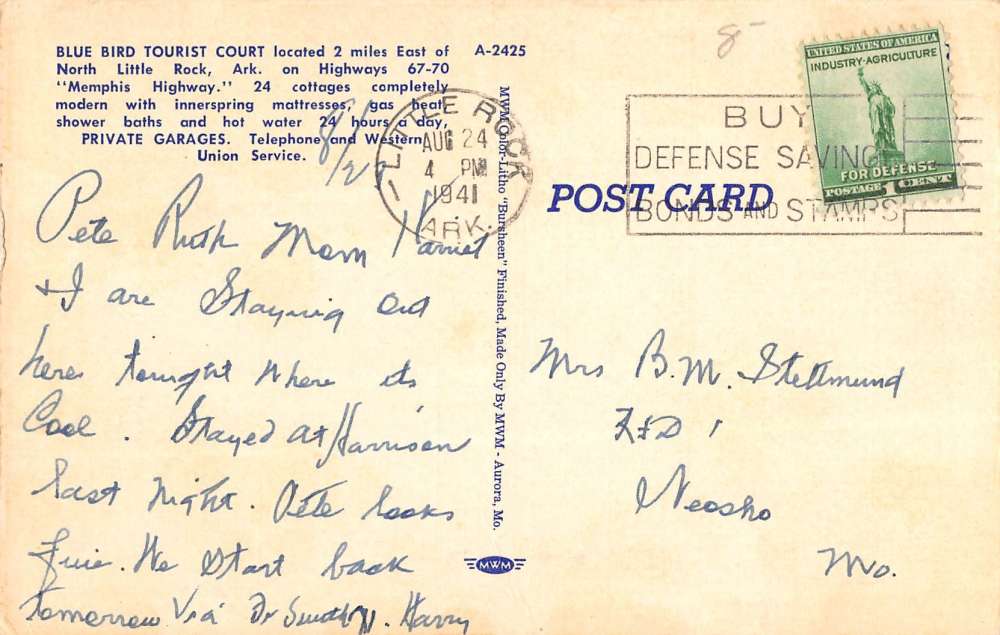 8-
BLUE BIRD TOURIST COURT located 2 miles East of
North Little Rock, Ark. on Highways 67-70
"Memphis Highway." 24 cottages completely
modern with innerspring mattresses, gas heat,
shower baths and hot water 24 hours a day,
PRIVATE GARAGES. Telephone and Western
Union Service.
A-2425
LITTLE ROCK
AUG 24
4 PM
1941
ARK.
BUY
DEFENSE SAVINGS
BONDS AND STAMPS
UNITED STATES OF AMERICA
INDUSTRY-AGRICULTURE
FOR DEFENSE
POSTAGE 1 CENT
POST CARD
Pete Ruth Mom Harriet
& I are Staying out
here tonight where its
Cool. Stayed at Harrison
last night. Pete looks
fine. We Start back
tomorrow Via Harry
MWM Color-Litho "Bursheen" Finished, Made Only By MWM - Aurora, Mo.
MWM
Mrs B.M. Stellmund
RFD 1
Neosho
Mo.